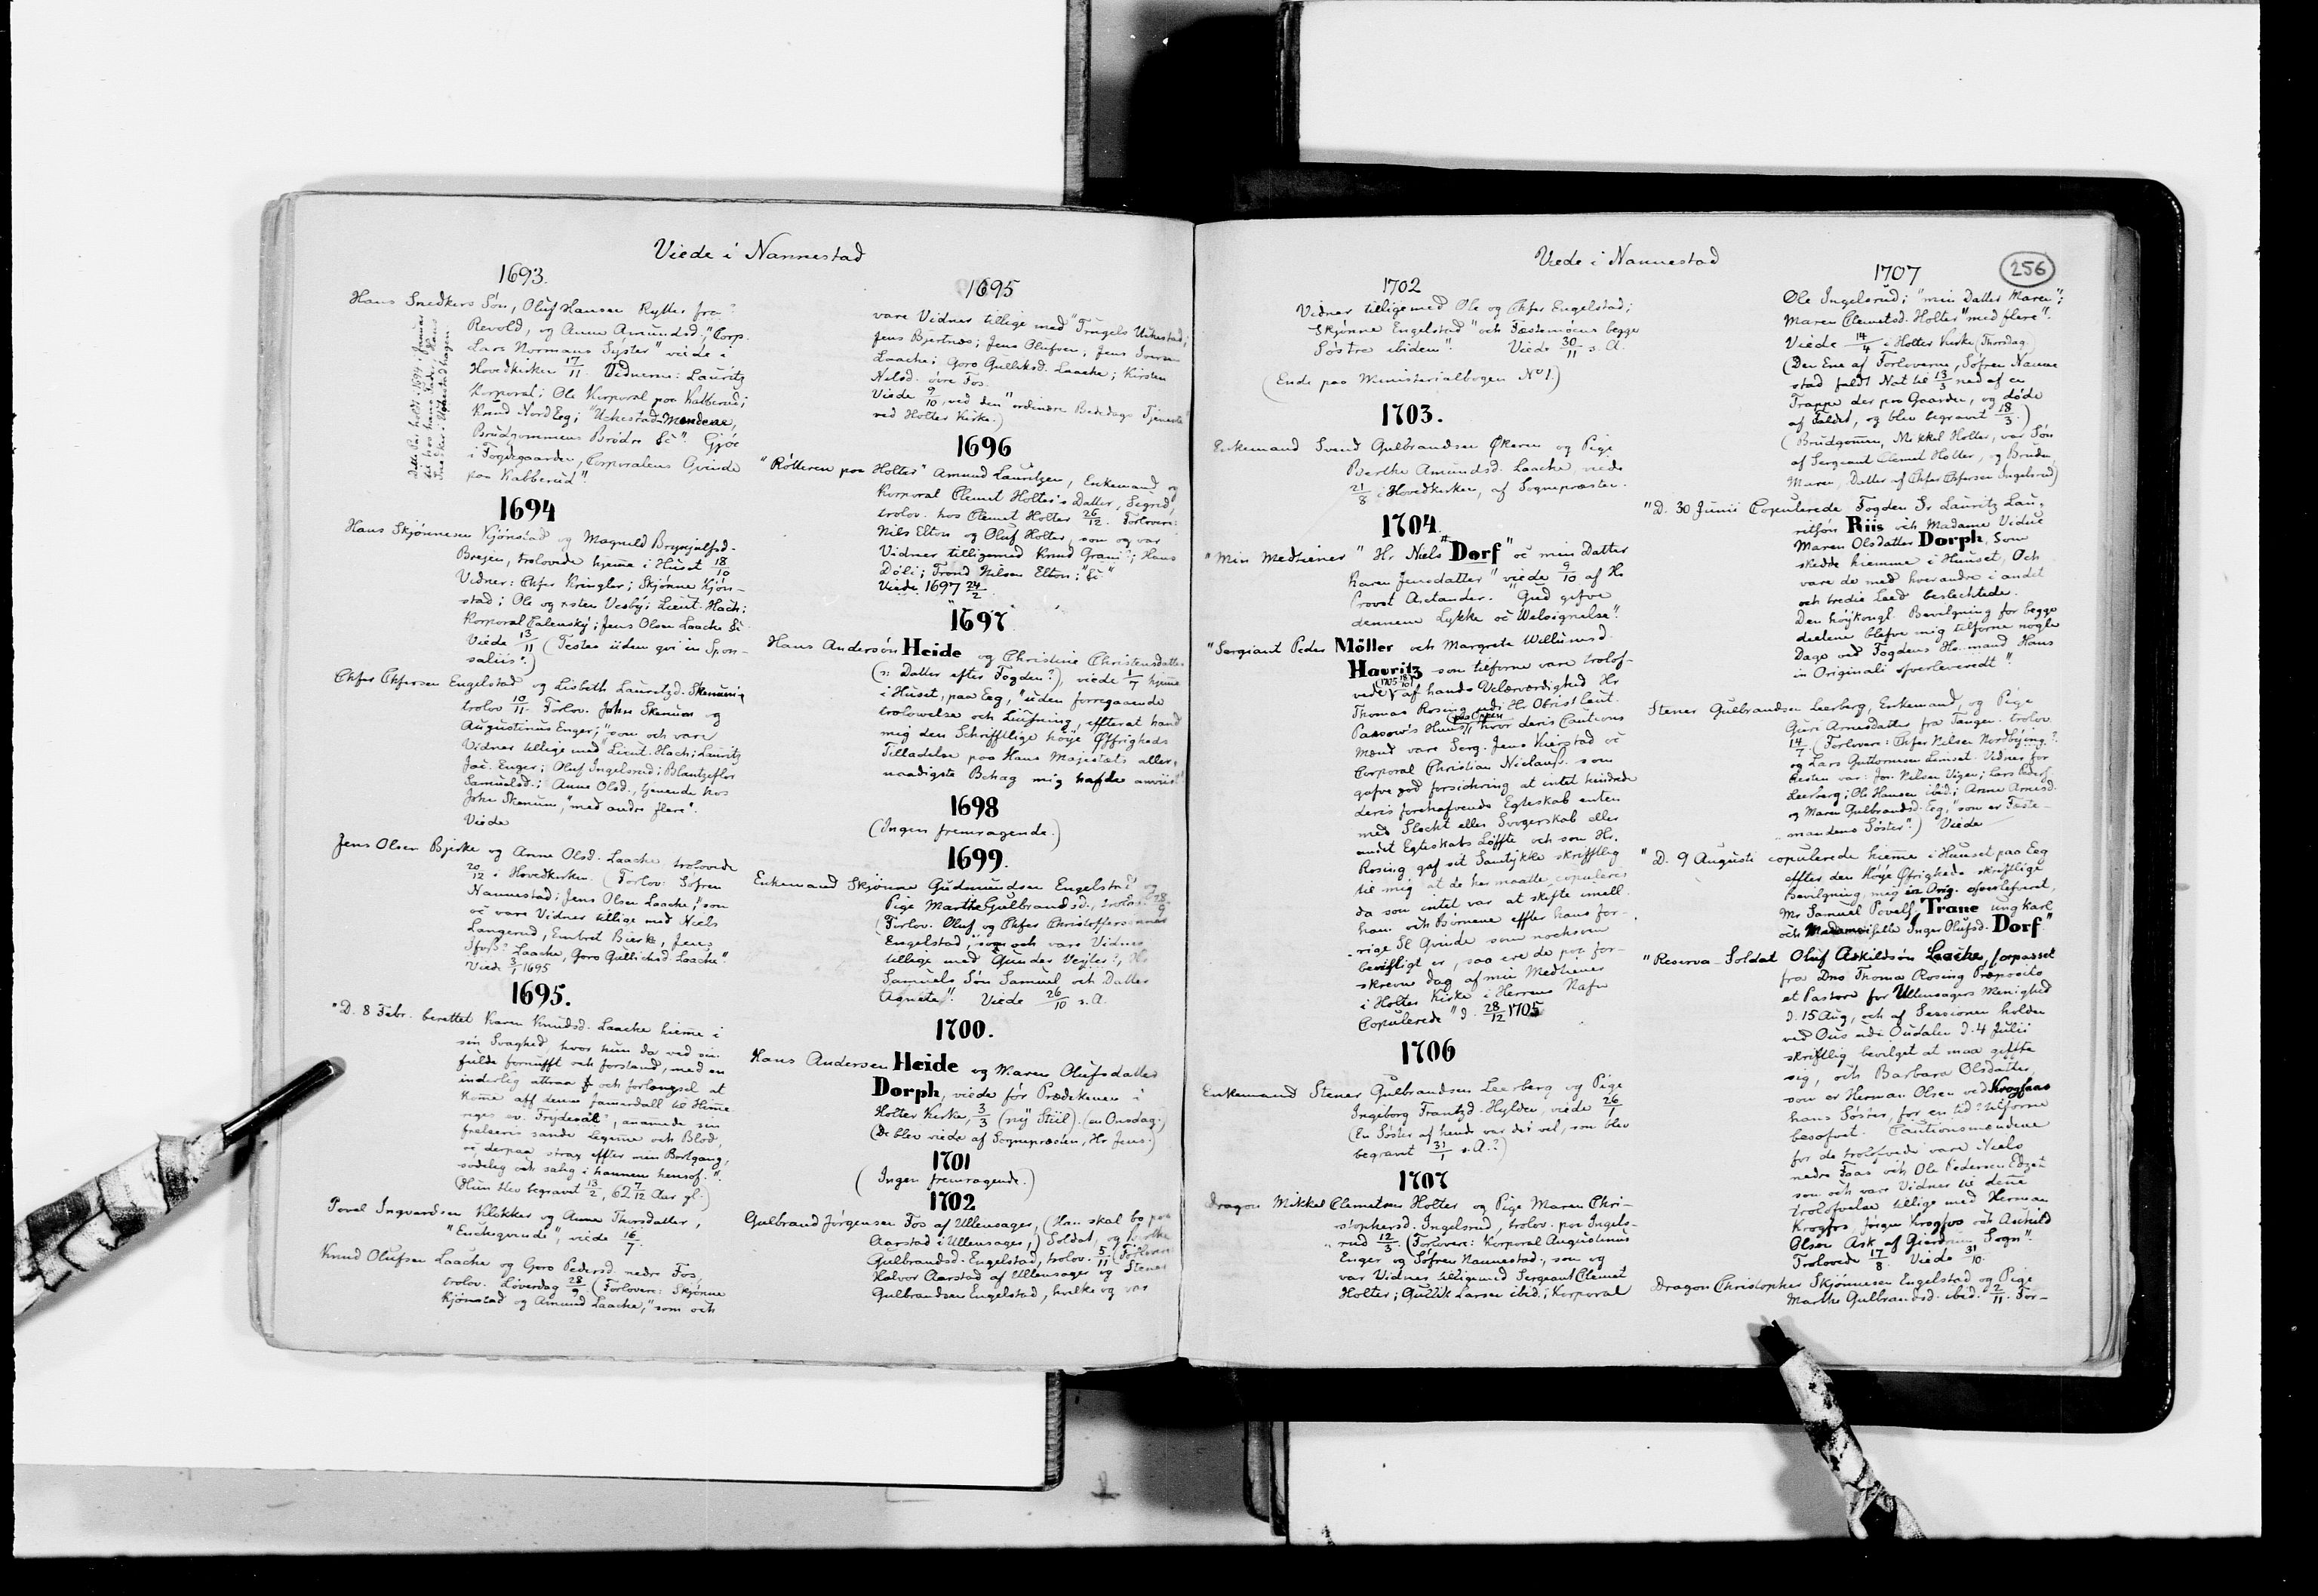 Viede i Nannestad
1693.
Hans Snedkers Søn, Oluf Hansen Rytter fra ?
Revold, og Anne Amundsd., "Corp.
Lars Normans Syster" viede i
Hovedkirken 17/11. Vidnerne: Lauritz
Korporal; Ole Korporal paa Kabberud;
Knud Nord Eeg; "Ukestad-Mændene,
Brudgommens Brødre &c". Gjør
i Fogdegaarden, Corporalens Qvinde
paa Kabberud"
1694
Hans Skjønnesen Kjønstad og Magnild Brynjulfsd.
Breien, trolovede hjeme i Huset 18/10
Vidner: Chfer Kringler; Skjønne Kjøn-
stad; Ole og Vesbÿ; Lieut. Hach;
Korporal Palenskÿ; Jens Olsen Laache &c
Viede 13/11 (Testes iidem qvi in Spon-
saliis".)
Chfer Chfersen Engelstad og Lisbeth Lauritzd. Skenum
trolov 10/11. Forlov. John Skenum og
Augustinus Enger; "som och vare
Vidner tillige med Lieut. Hach; Lauritz
Jac. Enger; Oluf Ingelsrud; Blantzeflor
Samuelsd.; Anne Olsd., tjenende hos
John Skenum, "med andre flere".
Viede
Jens Olsen Bjerke og Anne Olsd. Laache trolovede
20/12 i Hovedkirken. (Forlov: Søfren
Nannestad; Jens Olsen Laache, "som
oc vare Vidner tillige med Niels
Langerud, Embret Bierke, Jens
Laache, Goro Gullichsd. Laache."
Viede 3/1 1695
1695.
"D. 8 Febr. berettet Karen Knudsd. Laache hieme i
sin Svaghed, hvor hun da ved sin
fulde fornufft och forstand, med en
inderlig attraa og forlængsel at
kome aff denne Jamerdall til Hime-
riges ev. Frydesal, anamede sin
frelseris sande Legeme och Blod,
oc derpaa strax effter min Bortgang,
sødelig och salig i hannem hensof."
(Hun blev begravet 13/2, 62 7/12 Aar gl.)
Povel Ingvordsen Klokker og Anne Thorsdatter,
"Enckeqvinde", viede 16/7.
Knud Olufsen Laache og Goro Pedersd. nedre Fos
trolov. Løverdag 28/9 (Forlovere: Skjønne
Kjønstad og Amund Laache, "som och
1695
vare Vidner tillige med "Trugels Ukestad;
Jens Bjertnes; Jens Olufsen; Jens Iversen
Laache; Goro Gulliksd. Laache; Kirsten
Nilsd. øvre Fos.
Viede 9/10, ved den "ordinære Bededags Tjeneste
ved Holter Kirke.)
1696
"Rotteren paa Holter" Amund Lauritzen, Enkemand og
Korporal Clemet Holter's Datter, Segrid,
trolov. hos Clemet Holter 26/12. Forlovere:
Nils Elton og Oluf Holter, som og var
Vidner tilligemed Knud Grani; Hans
Døli; Trond Nilsen Elton; &c"
Viede 1697 24/2
1697
Hans Andersøn Heide og Christine Christensdatter
(s: Datter efter Fogden?), viede 1/7 hjeme
i Huset, paa Eeg, "uden forregaaende
trolowelse och Liusning, effterat hand
mig den Schrifftlige høÿe Øffrigheds
Tilladelse paa Hans Majestets aller-
naadigste Behag mig hafde anviist"
1698
(Ingen fremragende.)
1699.
Enkemand Skjønne Gudmundsen Engelstad og
Pige Marthe Gulbrandsd., trolov. 28/9
(Forlov. Oluf og Chfer Christoffersønner
Engelstad, "som och vare Vidner
tillige med Gunder Vejler?, Hr
Samuels Søn Samuel och Datter
Agnete". Viede 26/10 s.A.
1700.
Hans Andersen Heide og Maren Olufsdatter
Dorph, viede før Prædikenen i
Holter Kirke, 3/3 (nÿ Stiil). (en Onsdag.)
(De blev viede af Sognepræsten, Hr Jens.)
1701
(Ingen fremragende.)
1702
Gulbrand Jørgensen Fos af Ullensager, (Han skal bo paa
Aarstad i Ullensager,) Soldat, og
Gulbrandsd. Engelstad, trolov. 5/11 (Forlovere
Halvor Aarstad af Ullensager og Stener
Gulbrandsen Engelstad, hvilke og var
Viede i Nannestad
256
1702
Vidner tilligemed Ole og Chfer Engelstad;
Skjønne Engelstad "och Festemøens begge
Søstre ibidem". Viede 30/11 s.A.
(Ende paa Ministerialbogen No 1.)
1703.
Enkemand Svend Gulbrandsen Økeren og Pige
Berthe Amundsd. Laache, viede
21/8 i Hovedkirken, af Sognepræsten.
1704.
"Min Medtiener" Hr. Niels "Dorf" oc min Datter
Karen Jensdatter" viede 9/10 af Hr
Provst Arctander. "Gud gifve
dennem Lykke oc Welsignelse".
"Sergiant Peder Møller och Margrete Willumsd.
Havritz som tilforne vare trolof-
vede (1705 18/10) af hands Velærværdighed Hr
Thomas Rosing udi Hr. Obrist Leut.
Passow's Huus paa Oppen, hvor deris Cautions
Mænd vare Serg. Jens Kierstad oc
Corporal Christian Nielsøn. som
gafve god forsichring at intet hindrede
deris forehafvende Egteskab enten
med Slecht eller Svogerskab eller
andet Egteskabs Løffte och som Hr.
Rosing gaf sit Samtÿkke skrifftlig
til mig at de her maatte copuleres
da som intet var at skifte imell.
ham och Børnene effter hans for-
rige Sl Qvinde som nocksom
bevisligt er, saa ere de paa for-
skrevne dag af min Medtiener
i Holter Kirke i Herrens Nafn
Copulerede" d. 28/12 1705
1706
Enkemand Stener Gulbrandsen Leerberg og Pige
Ingeborg Frantzd. Hylder, viede 26/1
(En Søster af hende var det vel, som blev
begravet 31/1 s.A.?)
1707
Dragon Mikkel Clemetsen Holter og Pige Maren Chri-
stophersd. Ingelsrud, trolov. paa Ingels-
rud 12/3. (Forlovere: Korporal Augustinus
Enger og Søfren Nannestad., som og
var Vidner tilligemed Sergeant Clemet
Holter; Gullik Larsen ibid.; Korporal
1707
Ole Ingelsrud; "min Datter Maren";
Maren Clemetsd. Holter "med flere".
Viede 14/4 i Holter Kirke (Thorsdag)
(Den Ene af Forloverne, Søfren Nanne-
stad faldt Nat til 13/3 ned af en
Trappe der paa Gaarden, og døde
af Faldet, og blev begravet 18/3.)
(Brudgomen, Mikkel Holter, var Søn
af Sergeant Clemet Holter, og Bruden
Maren, Datter af Chfer Chfersen Ingelsrud)
"D. 30 Junii Copulerede Fogden Sr Lauritz Lau-
ritsøn Riis och Madame Vidue
Maren Olsdatter Dorph, som
skedte hiemme i Huuset, Och
vare de med hverandre i andet
och tredie Leed beslechtede.
Den høÿkongl. Bevilgning for begge
deelene blefve mig tilforne nogle
Dage ved Fogdens Hr.mand Hans
in Originali ofverleveredt".
Stener Gulbrandsen Leerberg, Enkemand, og Pige
Guri Arnesdatter fra Tangen. trolov.
14/7. (Forlovere: Chfer Nilsen Nordbÿing?
og Lars Guttormsen Lemset. Vidner for
Resten var: Jon Nilsen Vigen; Lars Peders
Leerberg; Ole Hansen ibid.; Anne Arnesd.
og Maren Gulbrandsd. Eeg, "som er Feste-
mandens Søster".) Viede
"D. 9 Augusti copulerede hieme i Huuset paa Eeg
effter den Høÿe Øfrigheds skriftlige
Bevilgning, mig in Orig. ofverlefveret,
Mr Samuel Povelss. Trane ungkarl
och Mademoiselle Inger Olufsd. Dorf"
"Reserva-Soldat Oluf Askildsøn Laache, forpasset
fra Dno Thoma Rosing Præposito
et Pastore for Ullensagers Menighed
d. 15 Aug, och af Sessionen holden
ved Ous udi Oudalen d. 4 Julii
skriftlig bevilget at maa gifte
sig, och Barbara Olsdatter,
som er Herman Olsen ved Krogfaas
hans Søster, for en tid tilforne
besofvet. Cautionsmændene
for de trolofvede vare Niels
nedre Faas och Ole Pedersen
som och vare Vidner til dene
trolofvelse tillige med Herman
Krogfos, Jørgen Krogfos och Aschild
Olsen Ask af Gierdrum Sogn".
Trolovede 17/8. Viede 31/10.
Dragon Christopher Skjønnesen Engelstad og Pige
Marthe Gulbrandsd. ibid. 2/11. For-